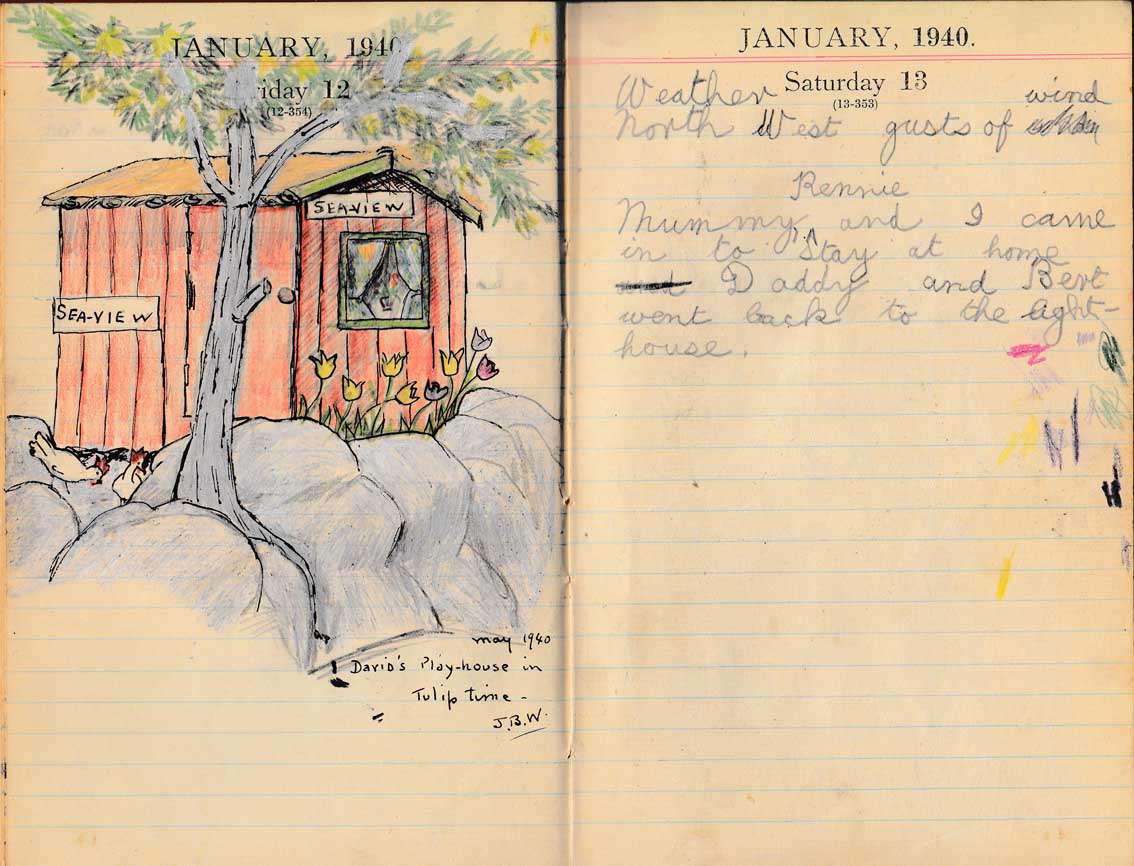 JANUARY, 1940
riday 12
(12-354)
SEA-VIEW
SEA-VIEW
may 1940
David's Play-house in
Tulip time -
J.B.W.
JANUARY, 1940.
Saturday 13
(13-353)
Weather wind
North West gusts of
Rennie
Mummy, and I came
in to Stay at home
and Daddy and Bert
went back to the light-
house.